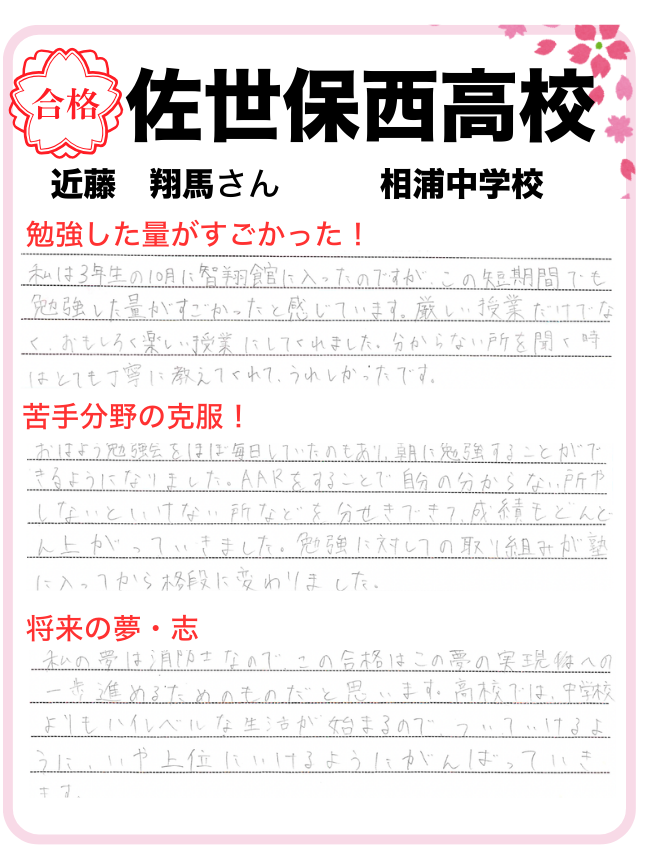 合格
佐世保西高校
近藤　翔馬さん　相浦中学校
勉強した量がすごかった！
私は3年生の10月に智翔館に入ったのですが、この短期間でも
勉強した量がすごかったと感じています。厳しい授業だけでな
く、おもしろく楽しい授業にしてくれました。分からない所を聞く時
はとても丁寧に教えてくれて、うれしかったです。
苦手分野の克服！
おはよう勉強会をほぼ毎日していたのもあり、朝に勉強することがで
きるようになりました。AARをすることで自分の分からない所や
しないといけない所などを分せきできて、成績もどんど
ん上がっていきました。勉強に対しての取り組みが塾
に入ってから格段に変わりました。
将来の夢・志
私の夢は消防士なので、この合格はこの夢の実現への
一歩進めるためのものだと思います。高校では、中学校
よりもハイレベルな生活が始まるので、ついていけるよ
うに、いや上位にいけるようにがんばっていき
ます。